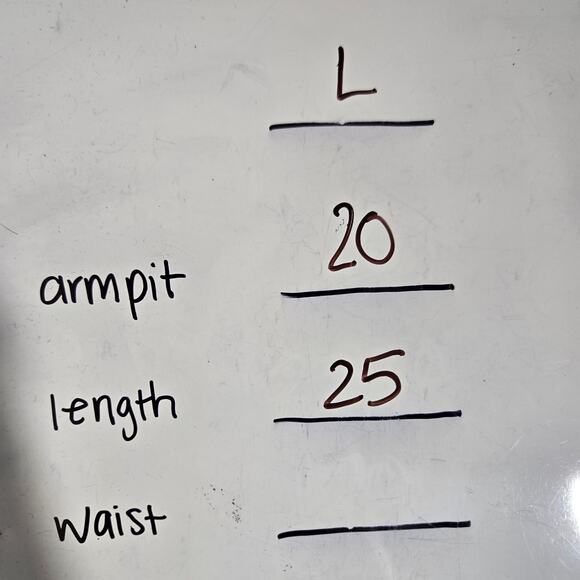 L
armpit 20
length 25
waist